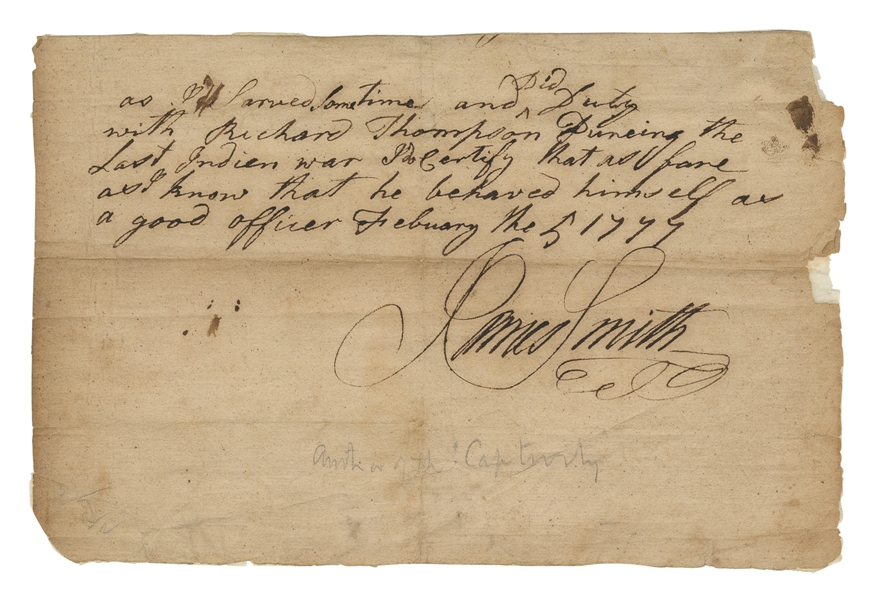 as I Sarved Sometime and Did Duty
with Richard Thompson Dureing the
Last Indien war I do Certify that as fare
as I know that he behaved himself as
a good officer Febuary the 5 1777
James Smith
Author of the "Captivity